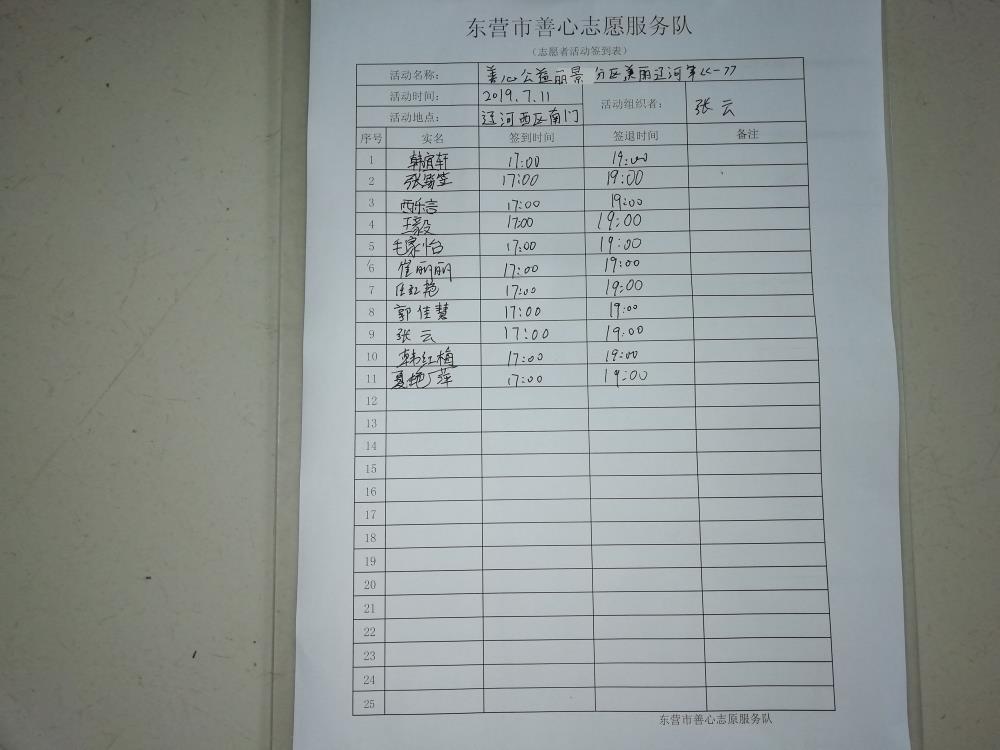 东营市善心志愿服务队
（志愿者活动签到表）
活动名称： 善心公益丽景 分区美丽辽河第
活动时间： 2019.7.11 活动组织者： 张云
活动地点： 辽河西区南门
序号 实名 签到时间 签退时间 备注
1 17:00 19:00
2 17:00 19:00
3 17:00 19:00
4 王毅 17:00 19:00
5 毛家怡 17:00 19:00
6 崔丽丽 17:00 19:00
7 任红艳 17:00 19:00
8 郭佳慧 17:00 19:00
9 张云 17:00 19:00
10 韩红梅 17:00 19:00
11 17:00 19:00
12
13
14
15
16
17
18
19
20
21
22
23
24
25
东营市善心志愿服务队